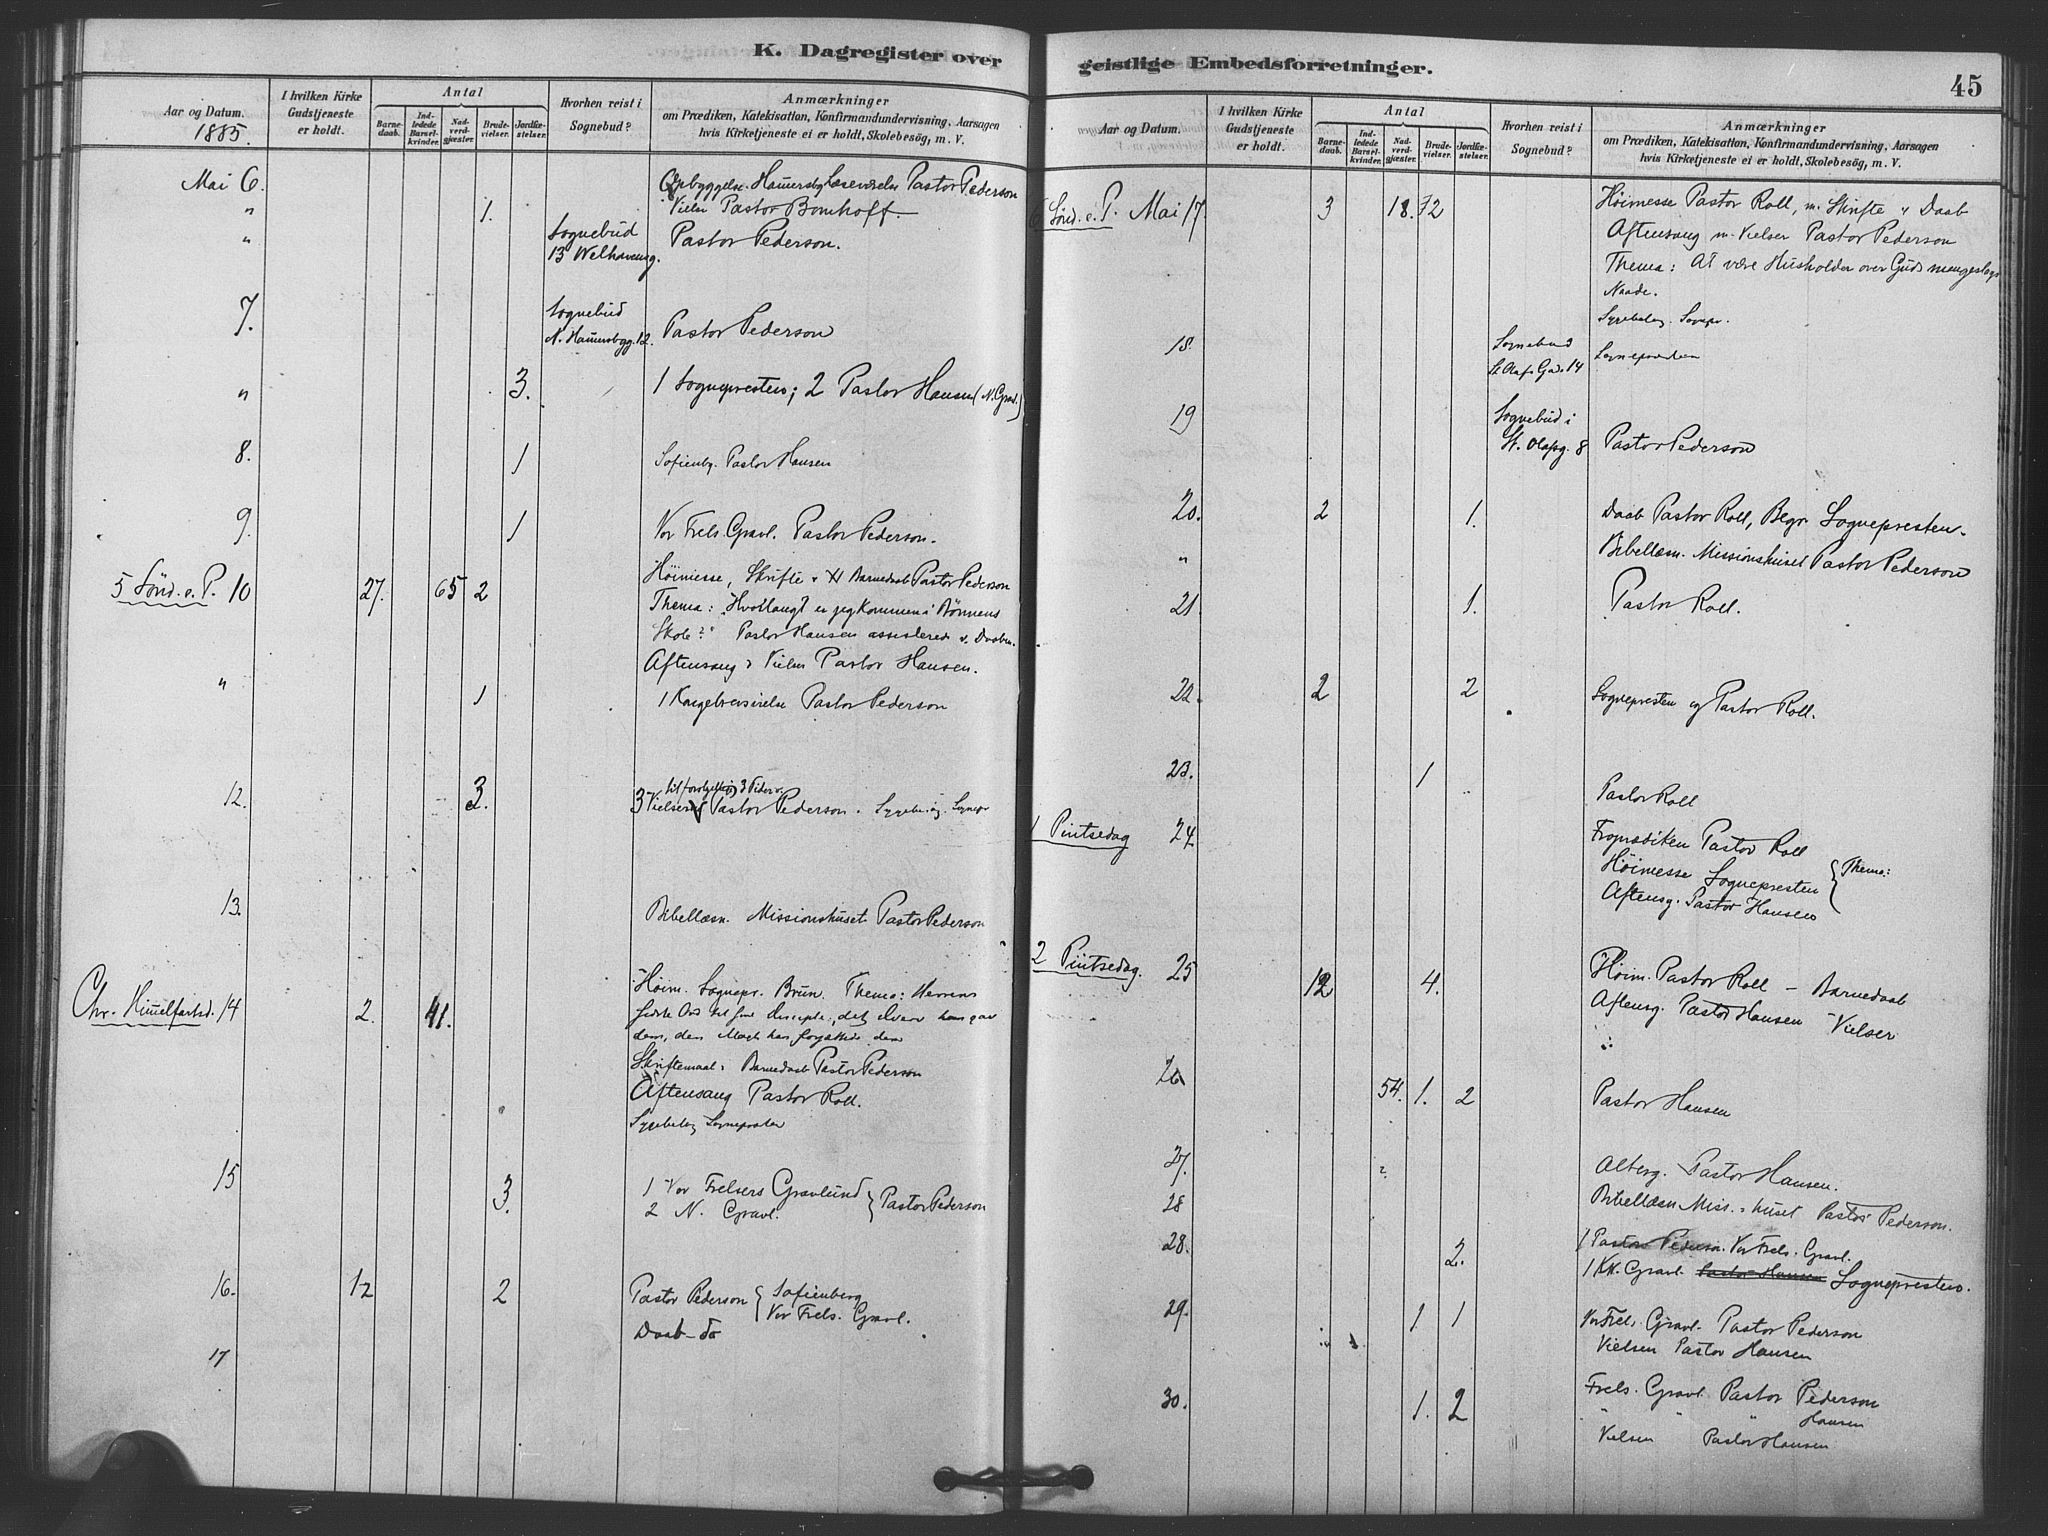 K. Dagregister over
Aar og Datum.
1885.
I hvilken Kirke
Gudstjeneste
er holdt.
Antal
Barne-
daab.
Ind-
ledede
Barsel-
kvinder.
Nad-
verd-
gjæster.
Brude-
vielser.
Jordfæ-
stelser.
Hvorhen reist i
Sognebud?
Anmærkninger
om Prædiken, Katekisation, Konfirmandundervisning, Aarsagen
hvis Kirketjeneste ei er holdt, Skolebesög, m. V.
Mai 6. Opbyggelse. Læseværelse Pastor Pederson
" 1. Vielse Pastor Bomhoff.
" Sognebud
13 Welhavensg. Pastor Pederson.
7. Sognebud
N. Hammersbgg. 12. Pastor Pederson
" 3. 1 Sognepresten; 2 Pastor Hansen (N. Grav.)
8. 1 Sofienbg. Pastor Hansen
9. 1 Vor Frels. Gravl. Pastor Pederson.
5 Sönd. e. P. 10 27. 65 2 Höimesse, Skrifte Barnedaab Pastor Pederson
Thema: "Hvorlangt er jeg kommen i Bönnens
Skole?" Pastor Hansen assisterede v. Daaben.
Aftensang Vielser Pastor Hansen.
" 1 1 Kongebrevsvielse Pastor Pederson
12. 3. 3 Vielser til forskjellig 3 Tider Pastor Pederson.
13. Bibellæsn. Missionshuset Pastor Pederson
Chr. Himmelfartsd. 14 2. 41. Höim. Sognepr. Brun. Thema: Herrens
sidste Ord til sine Disciple, det han gav
dem, den Magt han dem
Skriftemaal Barnedaab Pastor Pederson
Aftensang Pastor Roll.
Sognepresten
15 3. 1 Vor Frelsers Gravlund
2 N. Gravl. } Pastor Pederson
16. 12 2 Pastor Pederson { Sofienberg
Vor Frels. Gravl.
Daab - do
17
geistlige Embedsforretninger.
45
Aar og Datum.
I hvilken Kirke
Gudstjeneste
er holdt.
Antal
Barne-
daab.
Ind-
ledede
Barsel-
kvinder.
Nad-
verd-
gjæster.
Brude-
vielser.
Jordfæ-
stelser.
Hvorhen reist i
Sognebud?
Anmærkninger
om Prædiken, Katekisation, Konfirmandundervisning, Aarsagen
hvis Kirketjeneste ei er holdt, Skolebesög, m. V.
6 Sönd. e. P. Mai 17. 3 18. Höimesse Pastor Roll, m. Skrifte Daab
Aftensang m. Vielser Pastor Pederson
Thema: At være Husholder over Guds mangeslags
Naade.
18. Sognebud
St Olafs Gd. 14 Sognepresten
19 Sognebud i
St. Olafsg. 8 Pastor Pederson
20. 2 1. Daab Pastor Roll, Begr. Sognepresten.
" Bibellæsn. Missionshuset Pastor Pederson
21. 1. Pastor Roll.
22. 2 2 Sognepresten og Pastor Roll.
23. 1 Pastor Roll
1 Pintsedag 24 Froprædiken Pastor Roll
Höimesse Sognepresten } Thema:
Aftensg. Pastor Hansen
2 Pintsedag. 25 12 4. Höim. Pastor Roll - Barnedaab
Aftensg. Pastor Hansen - Vielser
26 54. 1. 2 Pastor Hansen
27. Alterg. Pastor Hansen.
28 Bibellæsn Miss.-huset Pastor Pederson.
28. 2. 1 Pastor Pederson. Vor Frels. Gravl.
1 Gravl. Pastor Hansen Sognepresten.
29. 1 1 Vor Frels. Gravl. Pastor Pederson
Vielsen Pastor Hansen
30. 1. 2 Frels. Gravl. Pastor Pederson
" " " Hansen
Vielsen Pastor Hansen